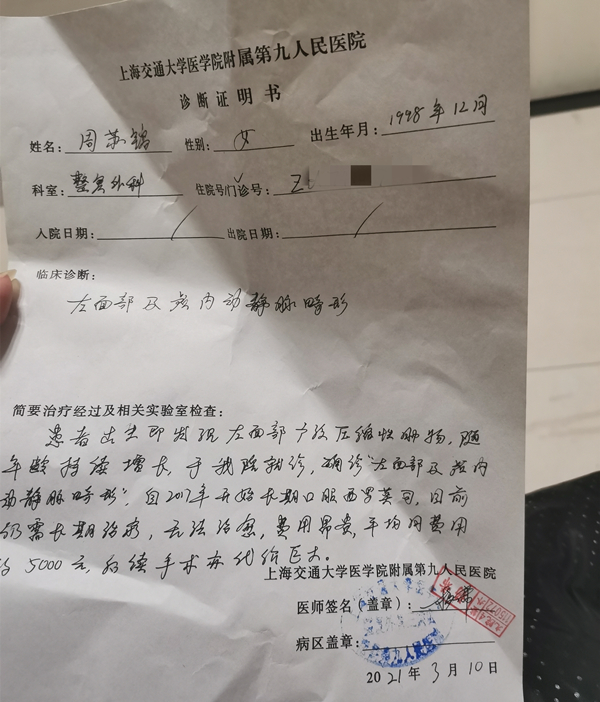 上海交通大学医学院附属第九人民医院
诊断证明书
姓名：周苏锦 性别：女 出生年月：1998年12月
科室：整复外科 住院号/门诊号：Z
入院日期：/ 出院日期：/
临床诊断：
左面部及颅内动静脉畸形
简要治疗经过及相关实验室检查：
患者出生即发现左面部 压缩性肿物，随
年龄持续增长，于我院就诊，确诊“左面部及颅内
动静脉畸形”，自2017年开始长期口服西罗莫司，目前
仍需长期治疗，无法治愈，费用昂贵，平均月费用
约5000元，后续手术 代价巨大。
上海交通大学医学院附属第九人民医院
医师签名（盖章）：
病区盖章：
第九人民医院
2021年3月10日